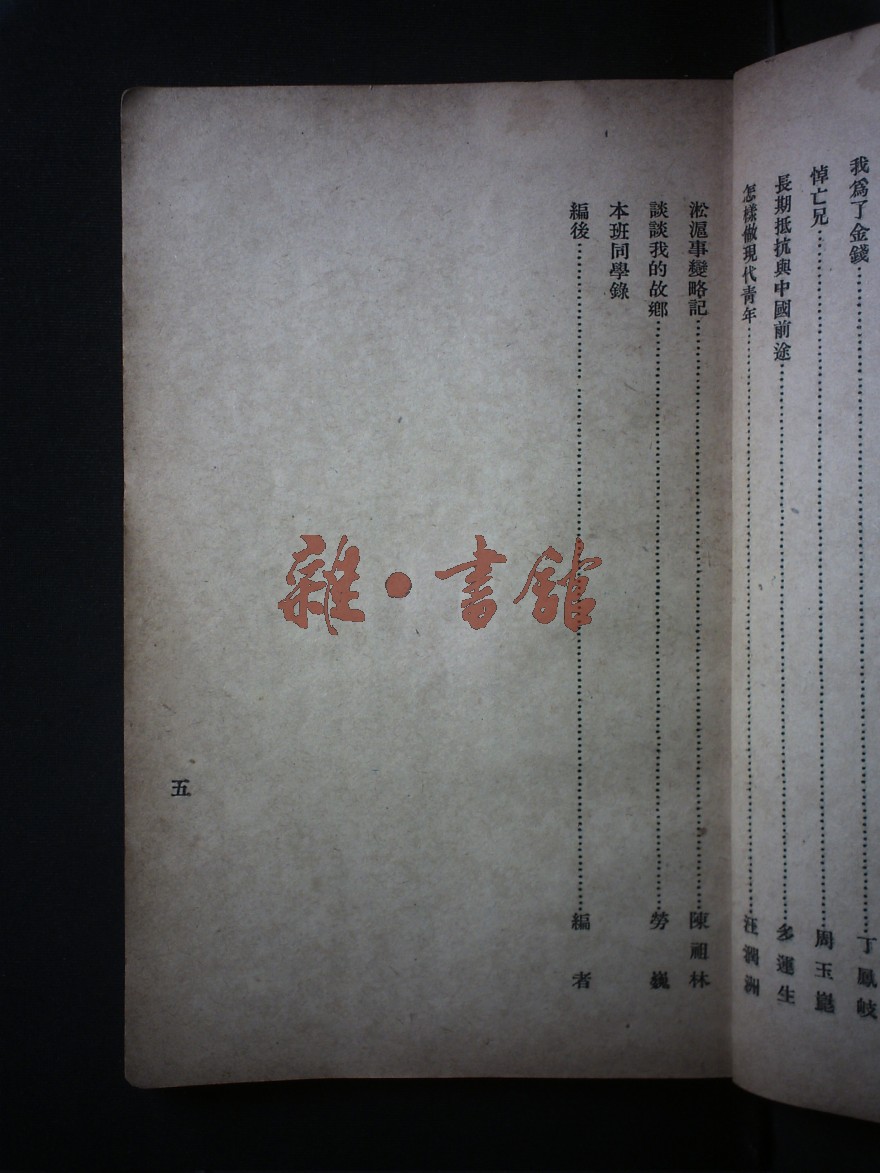 我爲了金錢……丁鳳岐
悼亡兄……周玉崑
長期抵抗與中國前途……多運生
怎樣做現代青年……汪潤洲
淞滬事變略記……陳祖林
談談我的故鄉……勞巍
本班同學錄
編後……編者
五
雜·書館